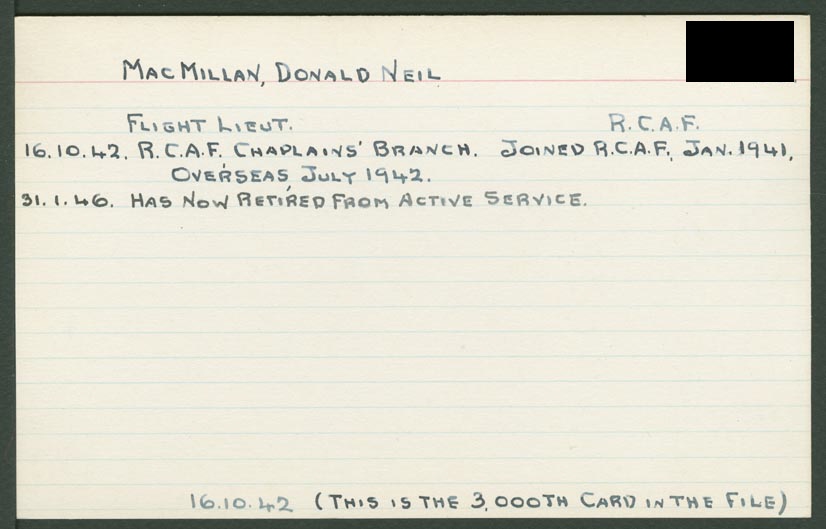 MacMillan, Donald Neil
Flight Lieut. R.C.A.F.
16.10.42. R.C.A.F. Chaplains' Branch. Joined R.C.A.F., Jan. 1941,
Overseas, July 1942.
31.1.46. Has Now Retired From Active Service.
16.10.42 (This is the 3,000th Card in the File)